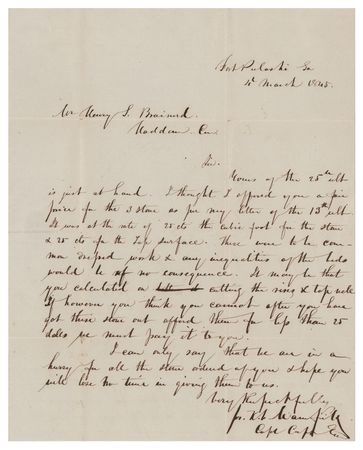 Fort Pulaski Ga
4th March 1845.
Mr Henry S. Brainerd.
Haddam. Cn.
Sir.
Yours of the 25th ult
is just at hand. I thought I offered you a fair
price for the 3 stone as per my letter of the 13th ult
It was at the rate of 25 cts the cubic foot for the stone
& 25 cts for the Top surface. There were to be com-
mon dressed work & any inequalities of the beds
would be of no consequence. It may be that
you calculated on cutting the rises & top
If however you think you cannot after you have
got these stone out afford them for less than 25
dolls we must pay it to you.
I can only say that we are in a
hurry for all the stone ordered of you & hope you
will lose no time in giving them to us.
Very Respectfully
J. K. F. Mansfield
Capt Corps Eng